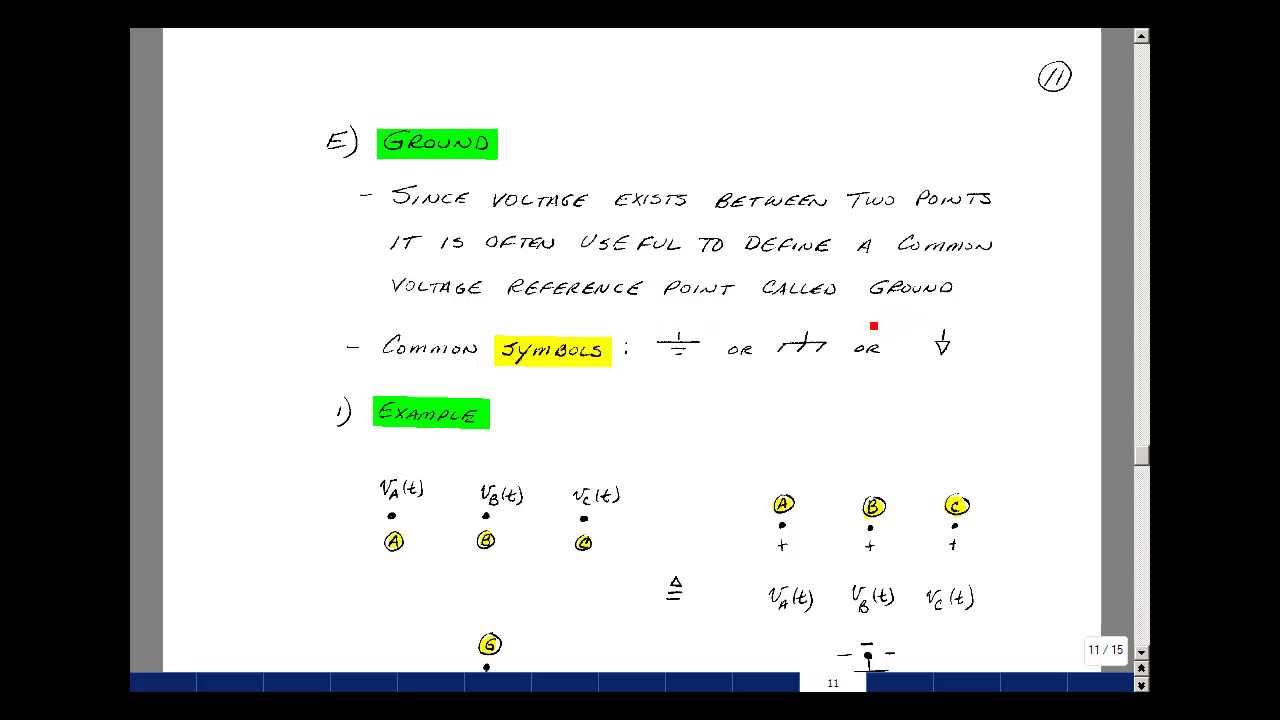 11
E) GROUND
- SINCE VOLTAGE EXISTS BETWEEN TWO POINTS
IT IS OFTEN USEFUL TO DEFINE A COMMON
VOLTAGE REFERENCE POINT CALLED GROUND
- COMMON SYMBOLS : OR OR
1) EXAMPLE
VA(t) VB(t) VC(t)
A B C
A B C
+ + +
≜
VA(t) VB(t) VC(t)
G
- - -
11 / 15
11